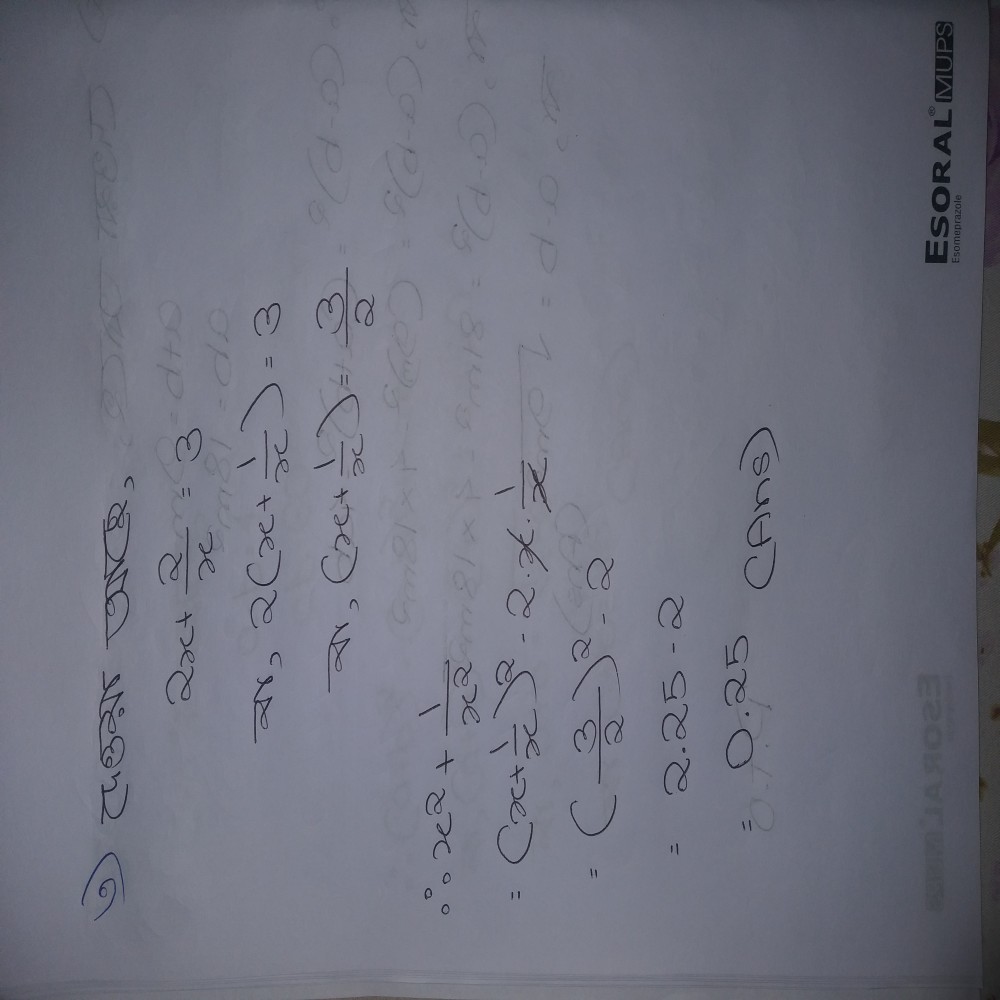 ৩) দেওয়া আছে,
2x + 2/x = 3
বা, 2(x + 1/x) = 3
বা, (x + 1/x) = 3/2
∴ x² + 1/x²
= (x + 1/x)² - 2.x.1/x
= (3/2)² - 2
= 2.25 - 2
= 0.25 (Ans)
ESORAL® MUPS
Esomeprazole